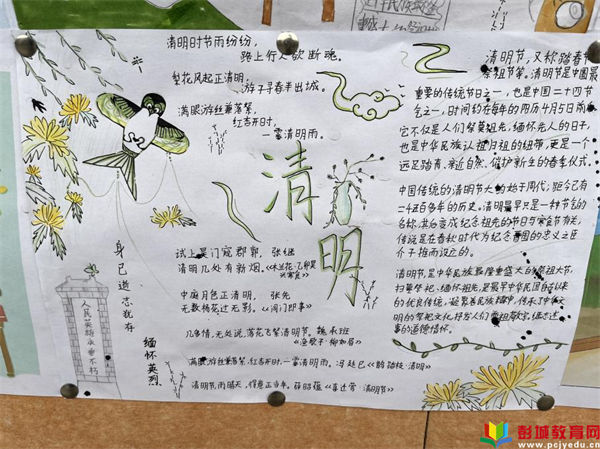 清明时节雨纷纷,
路上行人欲断魂。
梨花风起正清明,
游子寻春半出城。
满眼游丝兼落絮,
红杏开时,
一霎清明雨。
清明
试上吴门窥郡郭, 张继
清明几处有新烟。
中庭月色正清明, 张先
无数杨花过无影。
几多情,无处说,落花飞絮清明节。魏承班
《渔歌子·柳如眉》
满眼游丝兼落絮,红杏开时,一霎清明雨。冯延巳《鹊踏枝·清明》
清明节,雨晴天,得意正当年。薛昭蕴《喜迁莺·清明节》
身已逝志犹存
缅怀英烈
人民英雄永垂不朽
清明节,又称踏春节
祭祖节等。清明节是中国最
重要的传统节日之一,也是中国二十四节
气之一,时间约在每年的四月5日前
它不仅是人们祭奠祖先,缅怀先人的日子,
也是中华民族认祖归祖的纽带,更是一个
远足踏青、亲近自然、催护新生的春季仪式。
中国传统的清明节大约始于周代,距今已有
二千五百多年的历史。清明最早只是一种节气的
名称,其变成纪念祖先的节日与寒食节有关,
传说是在春秋时代为纪念晋国的忠义之臣
介子推而设立的。
清明节是中华民族最隆重盛大的祭祖大节,
扫墓祭祀、缅怀祖先,是中华民族
的优良传统,
的祭祀文化,抒发人们尊祖敬宗、继志述
事的道德情怀。
彭城教育网
www.pcjyedu.cn